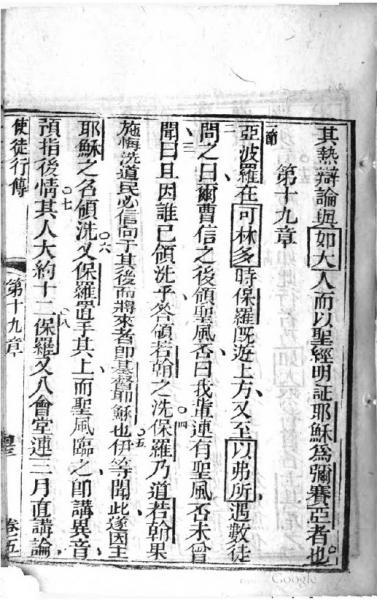 其熱辯論與如大人而以聖經明証耶穌為彌賽亞者也
第十九章
亞波羅在可林多時保羅既近上方又至以弗所遇數徒
問之曰爾曹信之後領聖風否曰我輩連有聖風否未曾
聞曰且因誰已領洗乎答領若翰之洗保羅乃道若翰果
施悔洗道民必信向于其後而將來者即基督耶穌也伊等聞此遂因主
耶穌之名領洗又保羅置手其上而聖風臨之即講異音
預指後情其人大約十二保羅又入會堂連三月直講論
使徒行傳
第十九章
卷五
Google